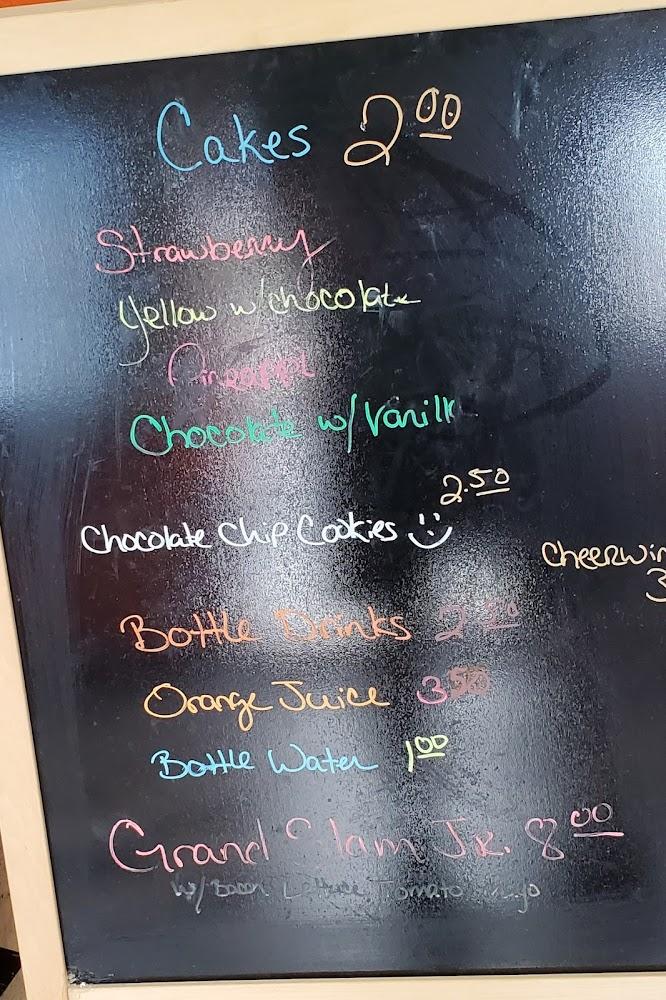 Cakes 2.00
Strawberry
Yellow w/chocolate
Pineappl
Chocolate w/Vanill
2.50
Chocolate Chip Cookies
Cheerwin
3
Bottle Drinks 2.50
Orange Juice 3.50
Bottle Water 1.00
Grand Slam Jr. 8.00
w/ Bacon Lettuce Tomato Mayo